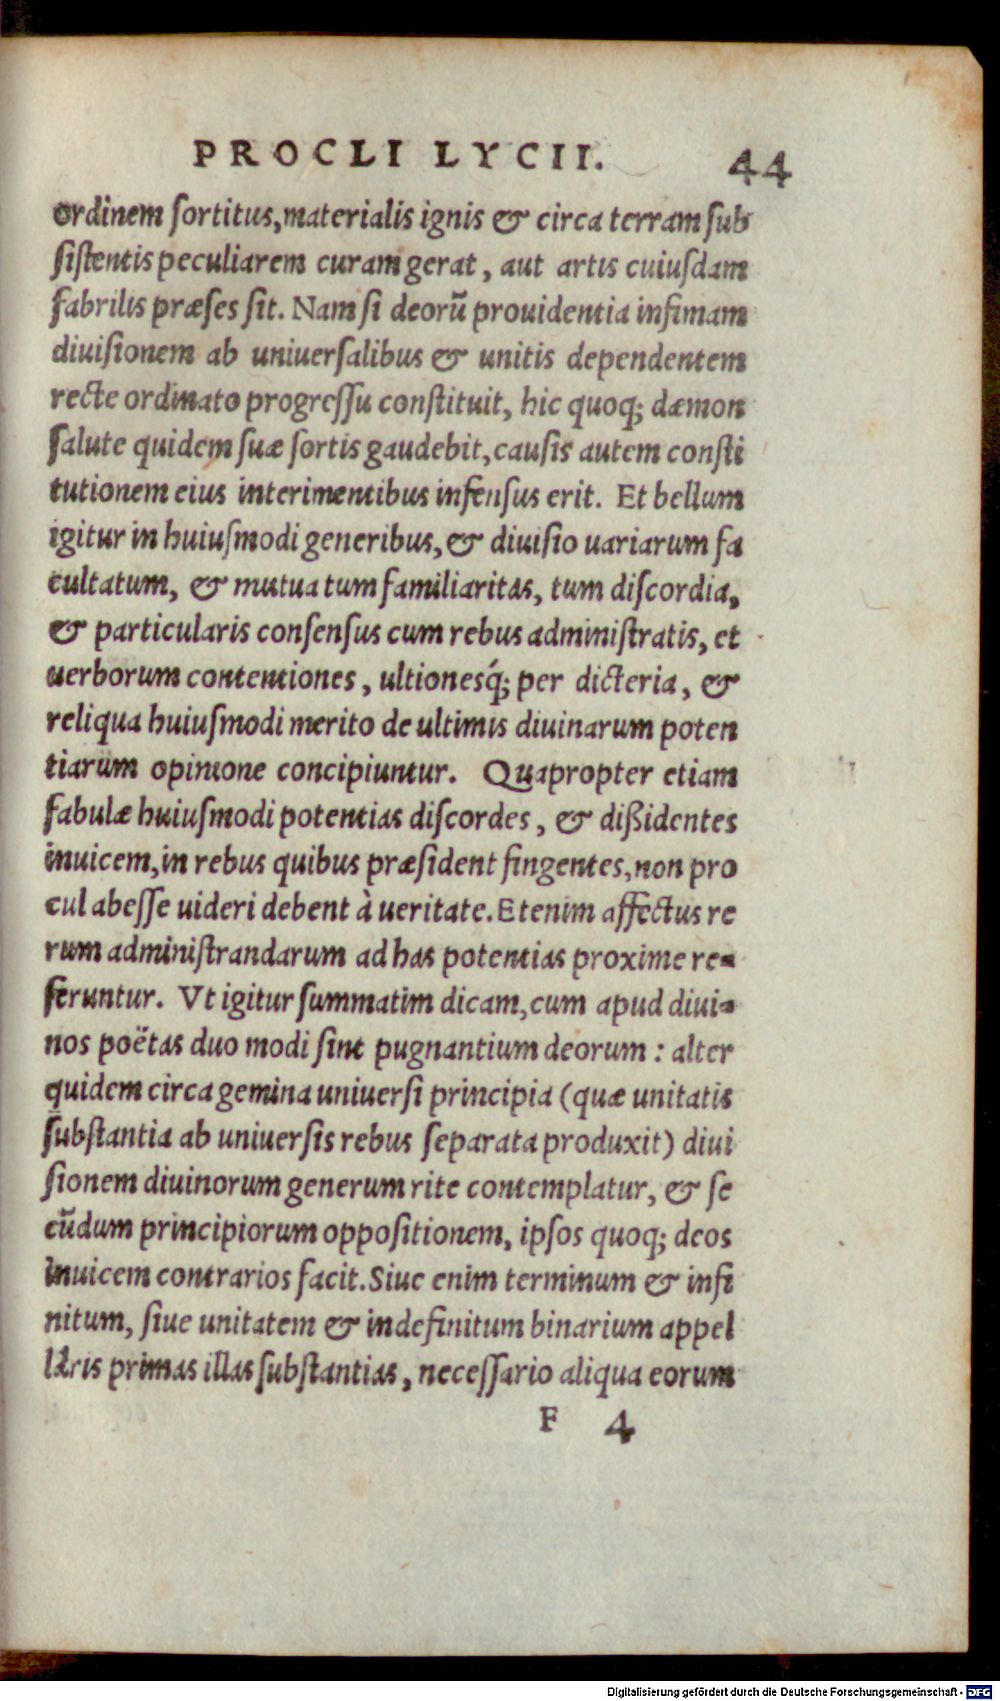 PROCLI LYCII. 44
ordinem ſortitus,materialis ignis & circa terram ſub
ſiſtentis peculiarem curam gerat, aut artis cuiuſdam
fabrilis præſes ſit. Nam ſi deorũ prouidentia infimam
diuiſionem ab uniuerſalibus & unitis dependentem
recte ordinato progreſſu conſtituit, hic quoq; dæmon
ſalute quidem ſuæ ſortis gaudebit,cauſis autem conſti
tutionem eius interimentibus infenſus erit. Et bellum
igitur in huiuſmodi generibus,& diuiſio uariarum fa
cultatum, & mutua tum familiaritas, tum diſcordia,
& particularis conſenſus cum rebus adminiſtratis, et
uerborum contentiones, ultionesq́; per dicteria, &
reliqua huiuſmodi merito de ultimis diuinarum poten
tiarum opinione concipiuntur. Quapropter etiam
fabulæ huiuſmodi potentias diſcordes, & dißidentes
inuicem,in rebus quibus præſident fingentes,non pro
cul abeſſe uideri debent à ueritate. Etenim affectus re
rum adminiſtrandarum ad has potentias proxime re-
feruntur. Vt igitur ſummatim dicam,cum apud diui-
nos poëtas duo modi ſint pugnantium deorum : alter
quidem circa gemina uniuerſi principia (quæ unitatis
ſubſtantia ab uniuerſis rebus ſeparata produxit) diui
ſionem diuinorum generum rite contemplatur, & ſe
cũdum principiorum oppoſitionem, ipſos quoq; deos
inuicem contrarios facit. Siue enim terminum & infi
nitum, ſiue unitatem & indefinitum binarium appel
laris primas illas ſubſtantias, neceſſario aliqua eorum
F 4
Digitalisierung gefördert durch die Deutsche Forschungsgemeinschaft - DFG